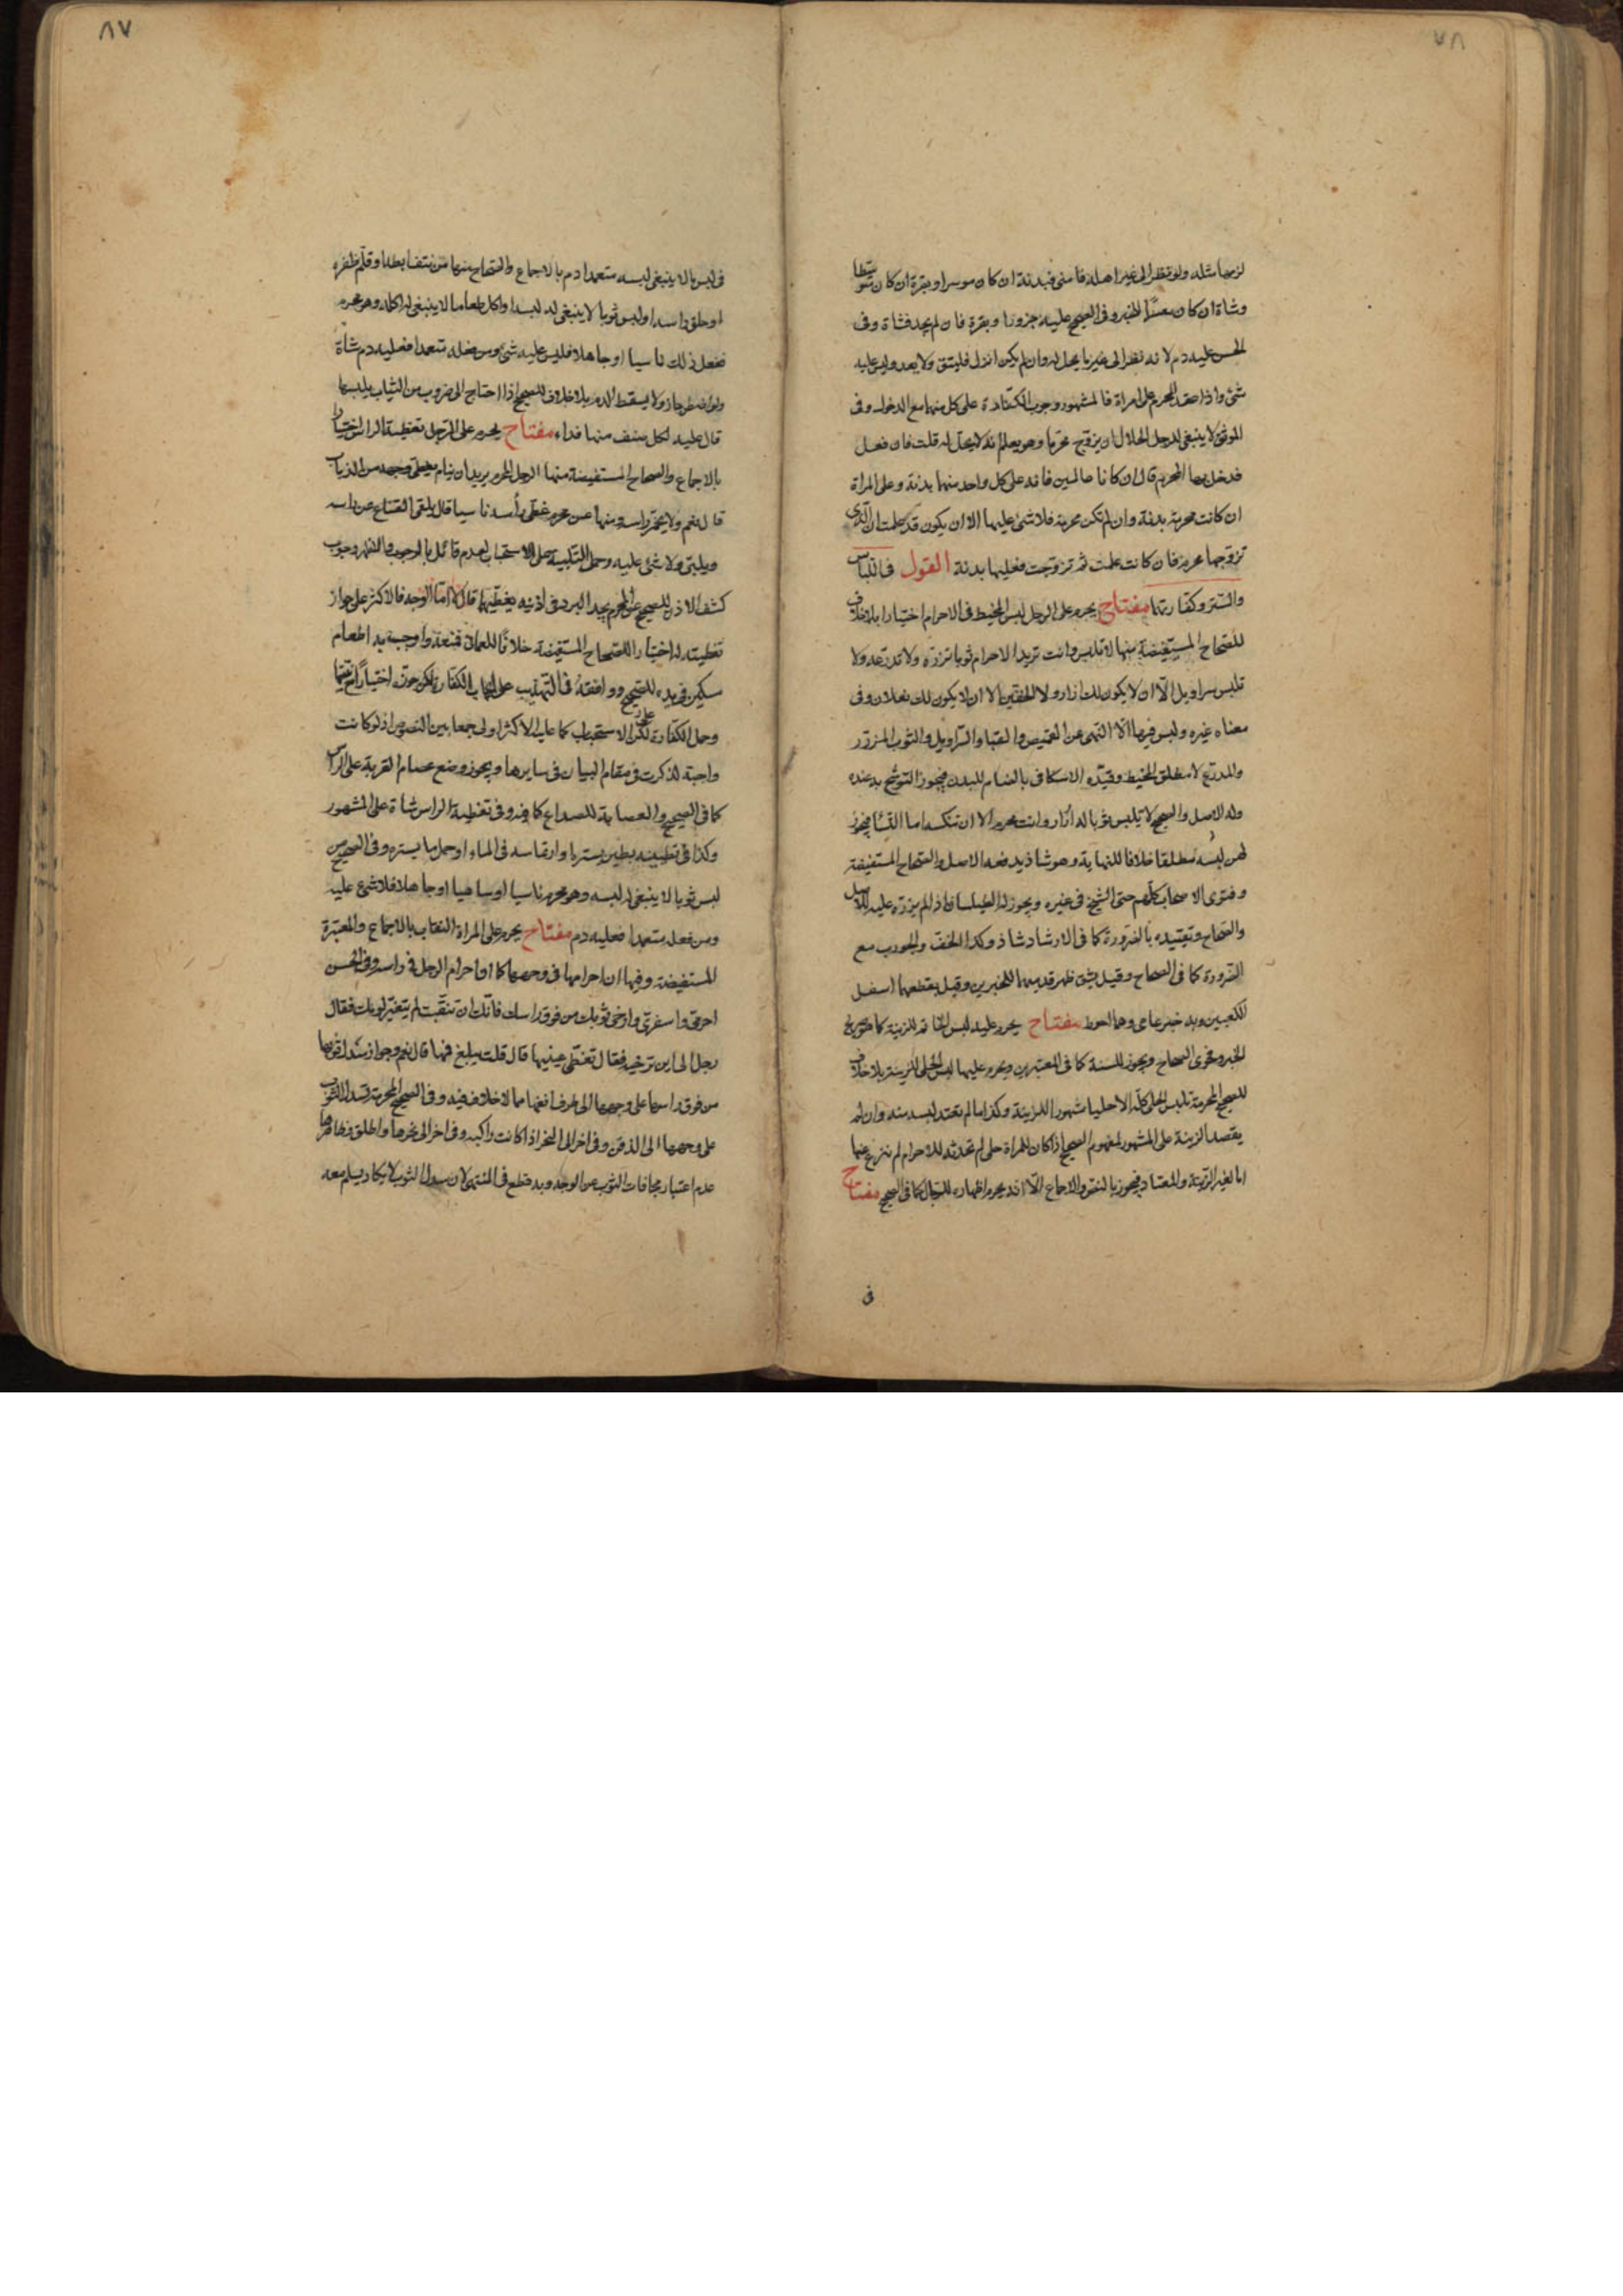 ٧٨
لزمها مثله ولو نظر الى غير اهله فامنى فبدنة ان كان موسرا وبقرة ان كان متوسطا
وشاة ان كان معسرا للخبر وفى الصحيح عليه جزورا وبقرة فان لم يجد فشاة وفى
الحسن عليه دم لانه نظر الى غير ما يحل له وان لم يكن انزل فليتق ولا يعد وليس عليه
شئ واذا عقد المحرم على امراة فالمشهور وجوب الكفارة على كل منهما مع الدخول وفى
الموثق لا ينبغى للرجل الحلال ان يزوج محرما وهو يعلم انه لا يحل له قلت فان فعل
فدخل بها المحرم قال ان كانا عالمين فانه على كل واحد منهما بدنة وعلى المراة
ان كانت محرمة بدنة وان لم تكن محرمة فلا شئ عليها الا ان يكون قد علمت ان الذى
تزوجها محرم فان كانت علمت ثم تزوجت فعليها بدنة القول فى اللباس
والستر وكفارتهما مفتاح يحرم على الرجل لبس المخيط فى الاحرام اختيارا بلا خلاف
للصحاح المستفيضة منها لا تلبس وانت تريد الاحرام ثوبا تزره ولا تدرعه ولا
تلبس سراويل الا ان لا يكون لك ازار ولا الخفين الا ان لا يكون لك نعلان وفى
معناه غيره وليس فيها الا النهى عن القميص والقبا والسراويل والثوب المزرر
والمدرع لا مطلق المخيط وقيده الاسكافى بالضام للبدن فيجوز التوشح به عنده
وله الاصل والصحيح لا تلبس ثوبا له ازرار وانت محرم الا ان تنكسه اما النسا فيجوز
لهن لبسه مطلقا خلافا للنهاية وهو شاذ يدفعه الاصل والصحاح المستفيضة
وفتوى الاصحاب كلهم حتى الشيخ فى غيره ويجوز له الطيلسان اذا لم يزره عليه للاصل
والصحاح وتقييده بالضرورة كما فى الارشاد شاذ وكذا الخف والجورب مع
الضرورة كما فى الصحاح وقيل يشق ظهر قدميهما للخبرين وقيل يقطعهما اسفل
الكعبين وبه خبر عامى وهما احوط مفتاح يحرم عليه لبس الخاتم للزينة كما هو صريح
الخبر وفحوى الصحاح ويجوز للسنة كما فى المعتبرين ويحرم عليها لبس الحلى للزينة بلا خلاف
للصحيح المحرمة تلبس الحلى كله الا حليا مشهورا للزينة وكذا ما لم تعتد لبسه منه وان لم
يقصد الزينة على المشهور لمفهوم الصحيح اذا كان للمراة حلى لم تحدثه للاحرام لم تنزع عنها
اما لغير الزينة والمعتاد فيجوز بالنص والاجماع الا انه يحرم اظهاره للرجال كما فى الصحيح مفتاح
ف
٨٧
فى لبس ما لا ينبغى لبسه متعمدا دم بالاجماع والصحاح منها من نتف ابطه او قلم ظفره
او حلق راسه او لبس ثوبا لا ينبغى له لبسه او اكل طعاما لا ينبغى له اكله وهو محرم
ففعل ذلك ناسيا او جاهلا فليس عليه شئ ومن فعله متعمدا فعليه دم شاة
ولو اضطر جاز ولا يسقط الدم بلا خلاف للصحيح اذا احتاج الى ضروب من الثياب يلبسها
قال عليه لكل صنف منها فداء مفتاح يحرم على الرجل تغطية الراس اختيارا
بالاجماع والصحاح المستفيضة منها الرجل المحرم يريد ان ينام يغطى وجهه من الذباب
قال نعم ولا يخمر راسه ومنها عن محرم غطى راسه ناسيا قال يلقى القناع عن راسه
ويلبى ولا شئ عليه وحمل التلبية على الاستحباب لعدم قائل بالوجوب والظهر وجوب
كشف الاذن للصحيح عن المحرم يجد البرد فى اذنيه يغطيهما قال لا اما الوجه فالاكثر على جواز
تغطيته له اختيارا للصحاح المستفيضة خلافا للعمانى فمنعه واوجب به اطعام
سكين فى يده للصحيح ووافقه فى التهذيب على ايجاب الكفارة لكن جوزه اختيارا
وحمل الكفارة لكن على الاستحباب كما عليه الاكثر اولى جمعا بين النصوص اذ لو كانت
واجبة لذكرت فى مقام البيان فى سايرها ويجوز وضع عصام القربة على الراس
كما فى الصحيح والعصابة للصداع كما فيه وفى تغطية الراس شاة على المشهور
وكذا فى تطيينه بطين يستره او ارتماسه فى الماء او حمل ما يستره وفى الصحيح من
لبس ثوبا لا ينبغى له لبسه وهو محرم ناسيا او ساهيا او جاهلا فلا شئ عليه
ومن فعله متعمدا فعليه دم مفتاح يحرم على المراة النقاب بالاجماع والمعتبرة
المستفيضة وفيها ان احرامها فى وجهها كما ان احرام الرجل فى راسه وفى الحسن
احرمى واسفرى وارخى ثوبك من فوق راسك فانك ان تنقبت لم يتغير لونك فقال
رجل الى اين ترخيه فقال تغطى عينيها قال قلت يبلغ فمها قال نعم وجواز سدل ثوبها
من فوق راسها على وجهها الى طرف انفها مما لا خلاف فيه وفى الصحيح المحرمة تسدل الثوب
على وجهها الى الذقن وفى اخر الى النحر اذا كانت راكبة وفى اخر الى نحرها واطلق فظاهرها
عدم اعتبار مجافات الثوب عن الوجه وبه قطع فى المنتهى لان سدل الثوب لا يكاد يسلم معه